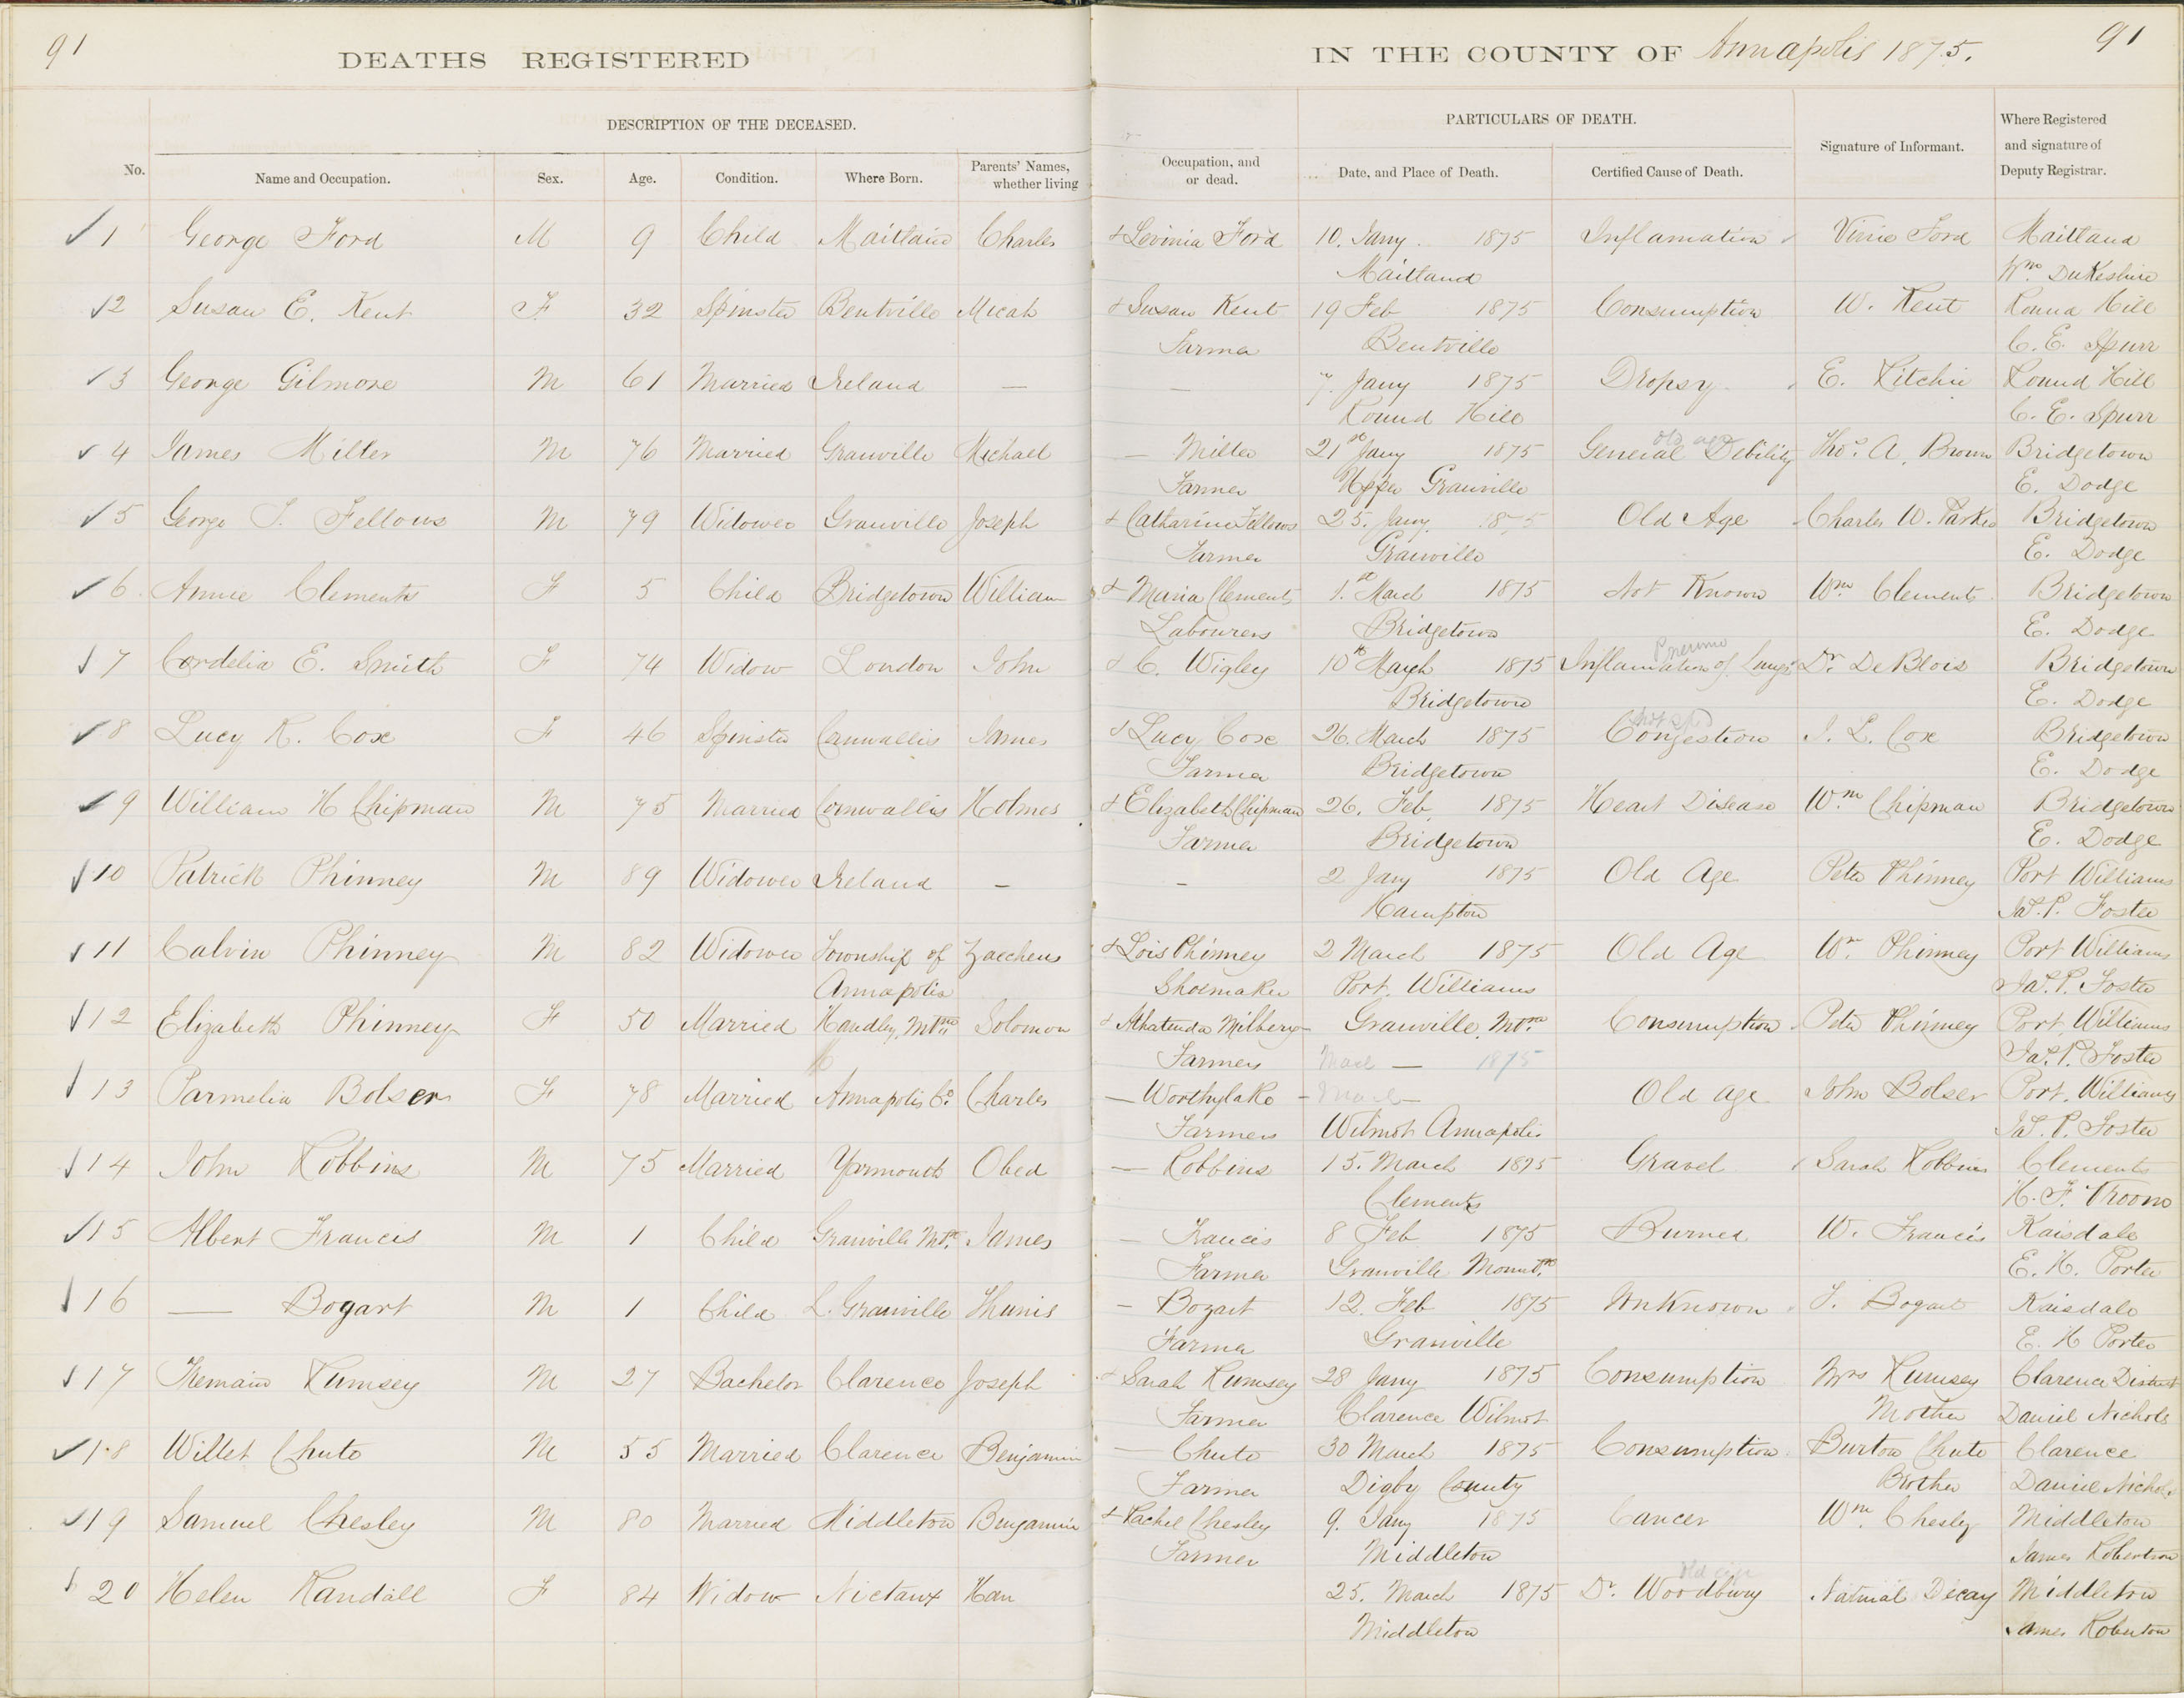 91
DEATHS REGISTERED IN THE COUNTY OF Annapolis 1875.
91
DESCRIPTION OF THE DECEASED.
PARTICULARS OF DEATH.
No. Name and Occupation. Sex. Age. Condition. Where Born. Parents' Names, whether living Occupation, and or dead. Date, and Place of Death. Certified Cause of Death. Signature of Informant. Where Registered and signature of Deputy Registrar.
1 George Ford M 9 Child Maitland Charles & Levinia Ford 10. Jany. 1875 Inflamation Vinie Ford Maitland
Maitland Wm DuKeshire
2 Susan E. Kent F 32 Spinster Bentville Micah & Susan Kent 19 Feb 1875 Consumption W. Kent Round Hill
Farmer Bentville C. E. Spurr
3 George Gilmore M 61 Married Ireland — — 7. Jany 1875 Dropsy E. Ritchie Round Hill
Round Hill C. E. Spurr
old age
4 James Miller M 76 Married Granville Michael — Miller 21st Jany 1875 General Debility Thos. A. Brown Bridgetown
Farmer Upper Granville E. Dodge
5 George T. Fellows M 79 Widower Granville Joseph & Catharine Fellows 25. Jany. 1875 Old Age Charles W. Parker Bridgetown
Farmer Granville E. Dodge
6 Annie Clements F 5 Child Bridgetown William & Maria Clements 1.st March 1875 Not Known Wm Clements Bridgetown
Labourers Bridgetown E. Dodge
Pneumo
7 Cordelia E. Smith F 74 Widow London John & C. Wigley 10th March 1875 Inflamation of Lungs Dr. DeBlois Bridgetown
Bridgetown E. Dodge
8 Lucy R. Cox F 46 Spinster Cornwallis James & Lucy Cox 26. March 1875 Congestion J. L. Cox Bridgetown
Farmer Bridgetown E. Dodge
9 William H Chipman M 75 Married Cornwallis Holmes & Elizabeth Chipman 26. Feb 1875 Heart Disease Wm Chipman Bridgetown
Farmer Bridgetown E. Dodge
10 Patrick Phinney M 89 Widower Ireland – – 2 Jany 1875 Old Age Peter Phinney Port Williams
Hampton Jas. P. Foster
11 Calvin Phinney M 82 Widower Township of Zaecheus & Lois Phinney 2 March 1875 Old Age Wm Phinney Port Williams
Annapolis Shoemaker Port Williams Jas. P. Foster
12 Elizabeth Phinney F 50 Married Handley, Mtn. Solomon & Milbery Granville, Mtn. Consumption Peter Phinney Port Williams
Farmers — 1875 Jas. P. Foster
13 Parmelia Bolser F 78 Married Annapolis Co. Charles — WorthylaKe Old age John Bolser Port Williams
Farmers Wilmot Annapolis Jas. P. Foster
14 John Robbins M 75 Married Yarmouth Obed — Robbins 15. March 1875 Gravel Sarah Robbins Clements
Clements H. F. Vroom
15 Albert Francis M 1 Child Granville Mtn. James — Francis 8 Feb 1875 Burned W. Francis Karsdale
Farmer Granville Mount.n E. H. Porter
16 — Bogart M 1 Child L. Granville Thunis — Bogart 12. Feb 1875 UnKnown T. Bogart Karsdale
Farmer Granville E. H Porter
17 Tremain Rumsey M 27 Bachelor Clarence Joseph & Sarah Rumsey 28 Jany 1875 Consumption Mrs Rumsey Clarence District
Farmer Clarence Wilmot Mother Daniel Nichols
18 Willet Chute M 55 Married Clarence Benjamin — Chute 30 March 1875 Consumption Burton Chute Clarence
Farmer Digby County Brother Daniel Nichols
19 Samuel Chesley M 80 Married Middleton Benjamin & Rachel Chesley 9. Jany 1875 Cancer Wm. Chesley Middleton
Farmer Middleton James Robertson
old age
20 Helen Randall F 84 Widow Nictaux Han 25. March 1875 Dr. Woodbury Natural Decay Middleton
Middleton James Roberton